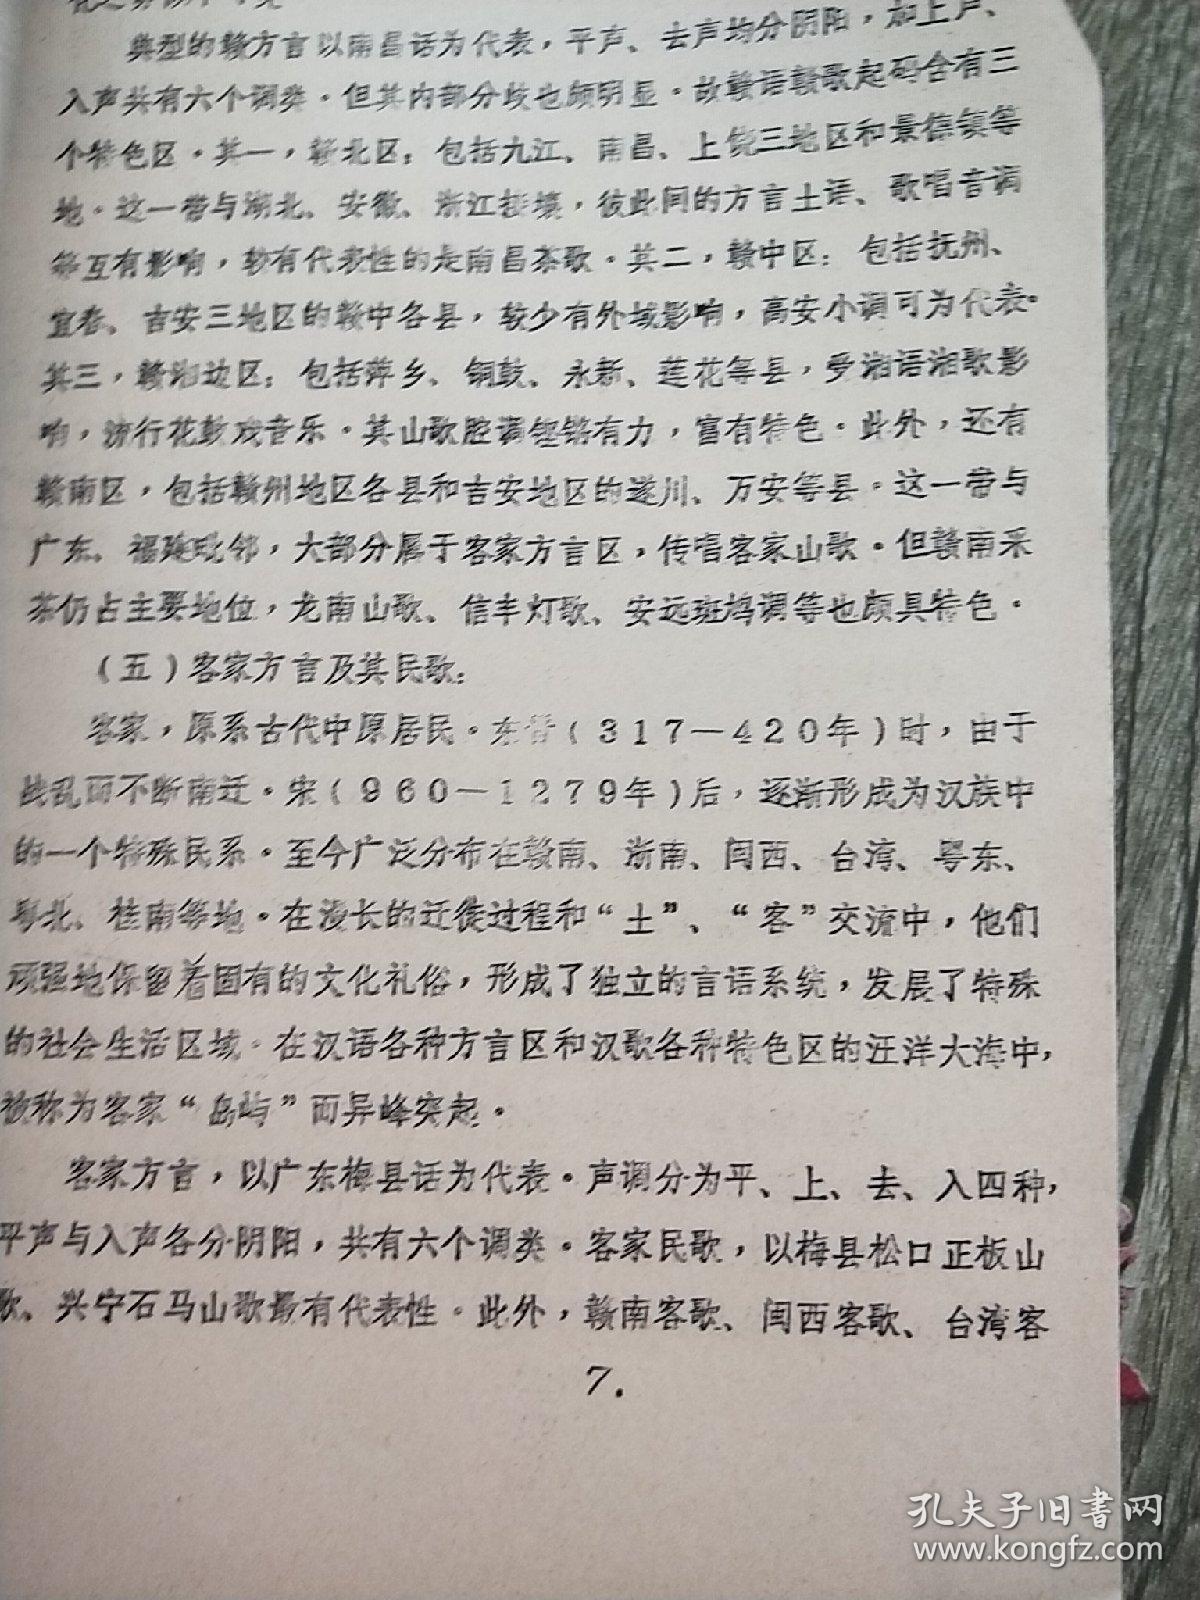 典型的赣方言以南昌话为代表，平声、去声均分阴阳，加上声、
入声共有六个调类。但其内部分歧也颇明显。故赣语赣歌起码含有三
个特色区。其一，赣北区：包括九江、南昌、上饶三地区和景德镇等
地。这一带与湖北、安徽、浙江接壤，彼此间的方言土语、歌唱音调
等互有影响，较有代表性的是南昌茶歌。其二，赣中区：包括抚州、
宜春、吉安三地区的赣中各县，较少有外域影响，高安小调可为代表。
其三，赣湘边区：包括萍乡、铜鼓、永新、莲花等县，受湘语湘歌影
响，流行花鼓戏音乐。其山歌腔调铿锵有力，富有特色。此外，还有
赣南区，包括赣州地区各县和吉安地区的遂川、万安等县。这一带与
广东、福建毗邻，大部分属于客家方言区，传唱客家山歌。但赣南采
茶仍占主要地位，龙南山歌、信丰灯歌、安远斑鸠调等也颇具特色。
（五）客家方言及其民歌：
客家，原系古代中原居民。东晋（317—420年）时，由于
战乱而不断南迁。宋（960—1279年）后，逐渐形成为汉族中
的一个特殊民系。至今广泛分布在赣南、浙南、闽西、台湾、粤东、
粤北、桂南等地。在漫长的迁徙过程和“土”、“客”交流中，他们
顽强地保留着固有的文化礼俗，形成了独立的言语系统，发展了特殊
的社会生活区域。在汉语各种方言区和汉歌各种特色区的汪洋大海中，
被称为客家“岛屿”而异峰突起。
客家方言，以广东梅县话为代表。声调分为平、上、去、入四种，
平声与入声各分阴阳，共有六个调类。客家民歌，以梅县松口正板山
歌、兴宁石马山歌最有代表性。此外，赣南客歌、闽西客歌、台湾客
7.
孔夫子旧书网
www.kongfz.com